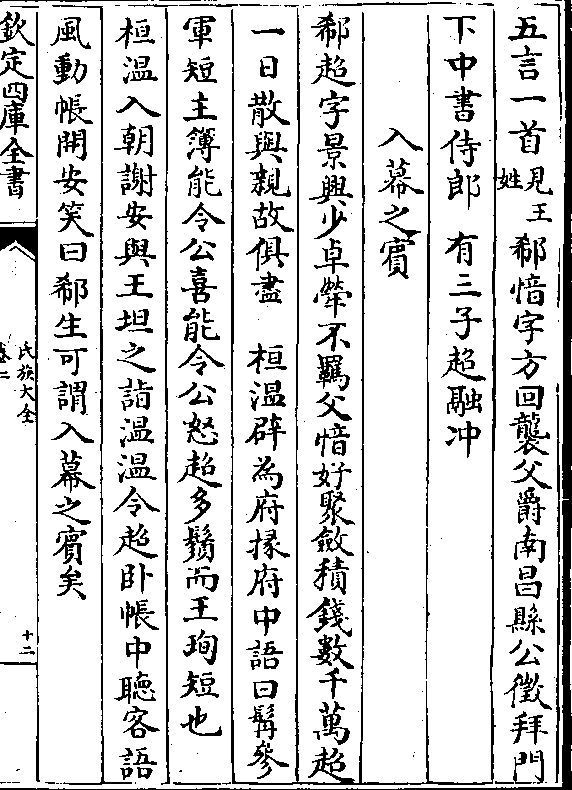 五言一首見王姓 郗愔字方回襲父爵南昌縣公徵拜門
下中書侍郎 有三子超融冲
入幕之賓
郗超字景興少卓犖不羈父愔好聚斂積錢數千萬超
一日散與親故俱盡 桓温辟為府掾府中語曰髯參
軍短主簿能令公喜能令公怒超多鬚而王珣短也
桓温入朝謝安與王坦之詣温温令超卧帳中聽客語
風動帳開安笑曰郗生可謂入幕之賓矣
欽定四庫全書
氏族大全
卷二
十二